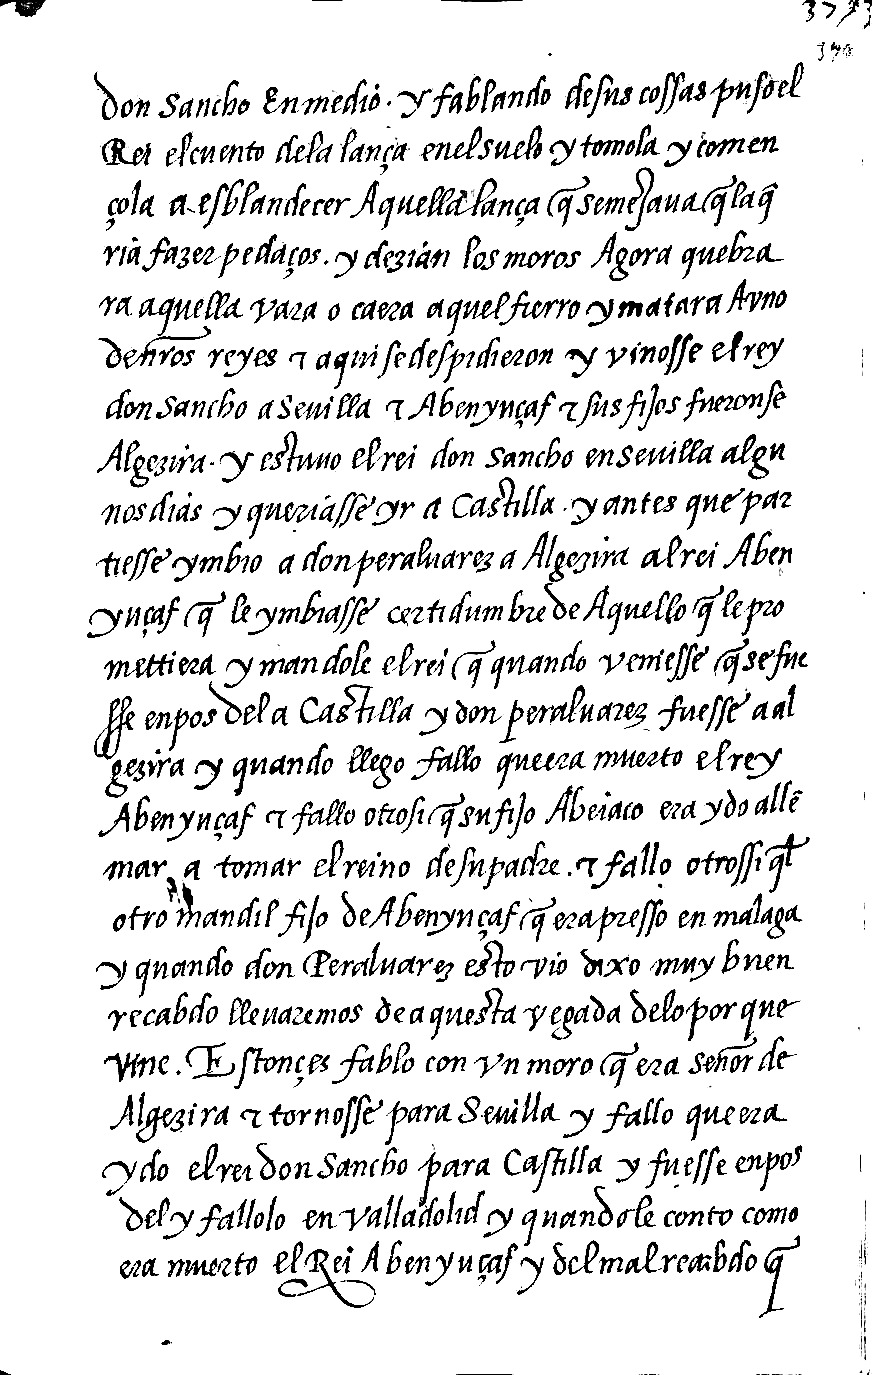 don Sancho Enmedio. y fablando desus cossas puso el
Rei elcuento dela lança enelsuelo y tomola y comen
çola a esblandecer Aquella lança q̃ semejaua q̃ la q̃
ria fazer pedaços. y dezian los moros Agora quebra
ra aquella vara o caera aquel fierro y matara Avno
den̄ros reyes ⁊ aqui se despidieron y vinosse el rey
don Sancho a Sevilla ⁊ Abenyuçaf ⁊ sus fijos fueronse
Algezira. y estuuo el rei don Sancho en Seuilla algu
nos dias y queriasse yr a Castilla. y antes que par
tiesse ymbio a don peraluarez a Algezira al rei Aben
yuçaf q̃ le ymbiasse certidumbre de Aquello q̃ le pro
mettiera y mandole el rei q̃ quando veniesse q̃ se fue
sse enpos del a Castilla y don peraluarez fuesse a al
gezira y quando llego fallo que era muerto el rey
Abenyuçaf ⁊ fallo otrosi q̃ su fijo Abeiaco era ydo allẽ
mar a tomar el reino de su padre. ⁊ fallo otrossi q̃l
otro mandil fijo de Abenyuçaf q̃ era presso en malaga
y quando don Peraluarez esto vio dixo muy buen
recabdo lleuaremos de aquesta vegada delo por que
vine. Estonçes fablo con vn moro q̃ era señor de
Algezira ⁊ tornosse para Sevilla y fallo que era
ydo el rei don Sancho para Castilla y fuesse enpos
del y fallolo en valladolid y quando le conto como
era muerto el Rei Abenyuçaf y del mal recabdo q̃